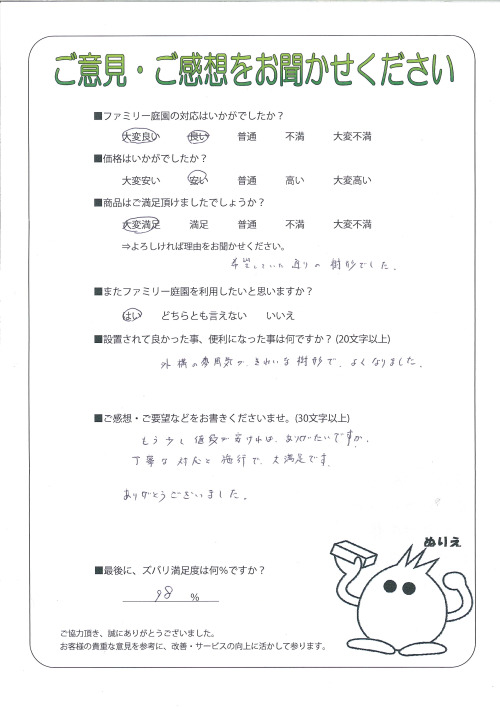 ご意見・ご感想をお聞かせください
■ファミリー庭園の対応はいかがでしたか？
大変良い 良い 普通 不満 大変不満
■価格はいかがでしたか？
大変安い 安い 普通 高い 大変高い
■商品はご満足頂けましたでしょうか？
大変満足 満足 普通 不満 大変不満
⇒よろしければ理由をお聞かせください。
希望していた通りの樹形でした。
■またファミリー庭園を利用したいと思いますか？
はい どちらとも言えない いいえ
■設置されて良かった事、便利になった事は何ですか？(20文字以上)
外構の雰囲気が、きれいな樹形で、よくなりました。
■ご感想・ご要望などをお書きくださいませ。(30文字以上)
もう少し値段が安ければ、ありがたいですが、
丁寧な対応と施行で、大満足です。
ありがとうございました。
ぬりえ
■最後に、ズバリ満足度は何％ですか？
98 ％
ご協力頂き、誠にありがとうございました。
お客様の貴重な意見を参考に、改善・サービスの向上に活かして参ります。